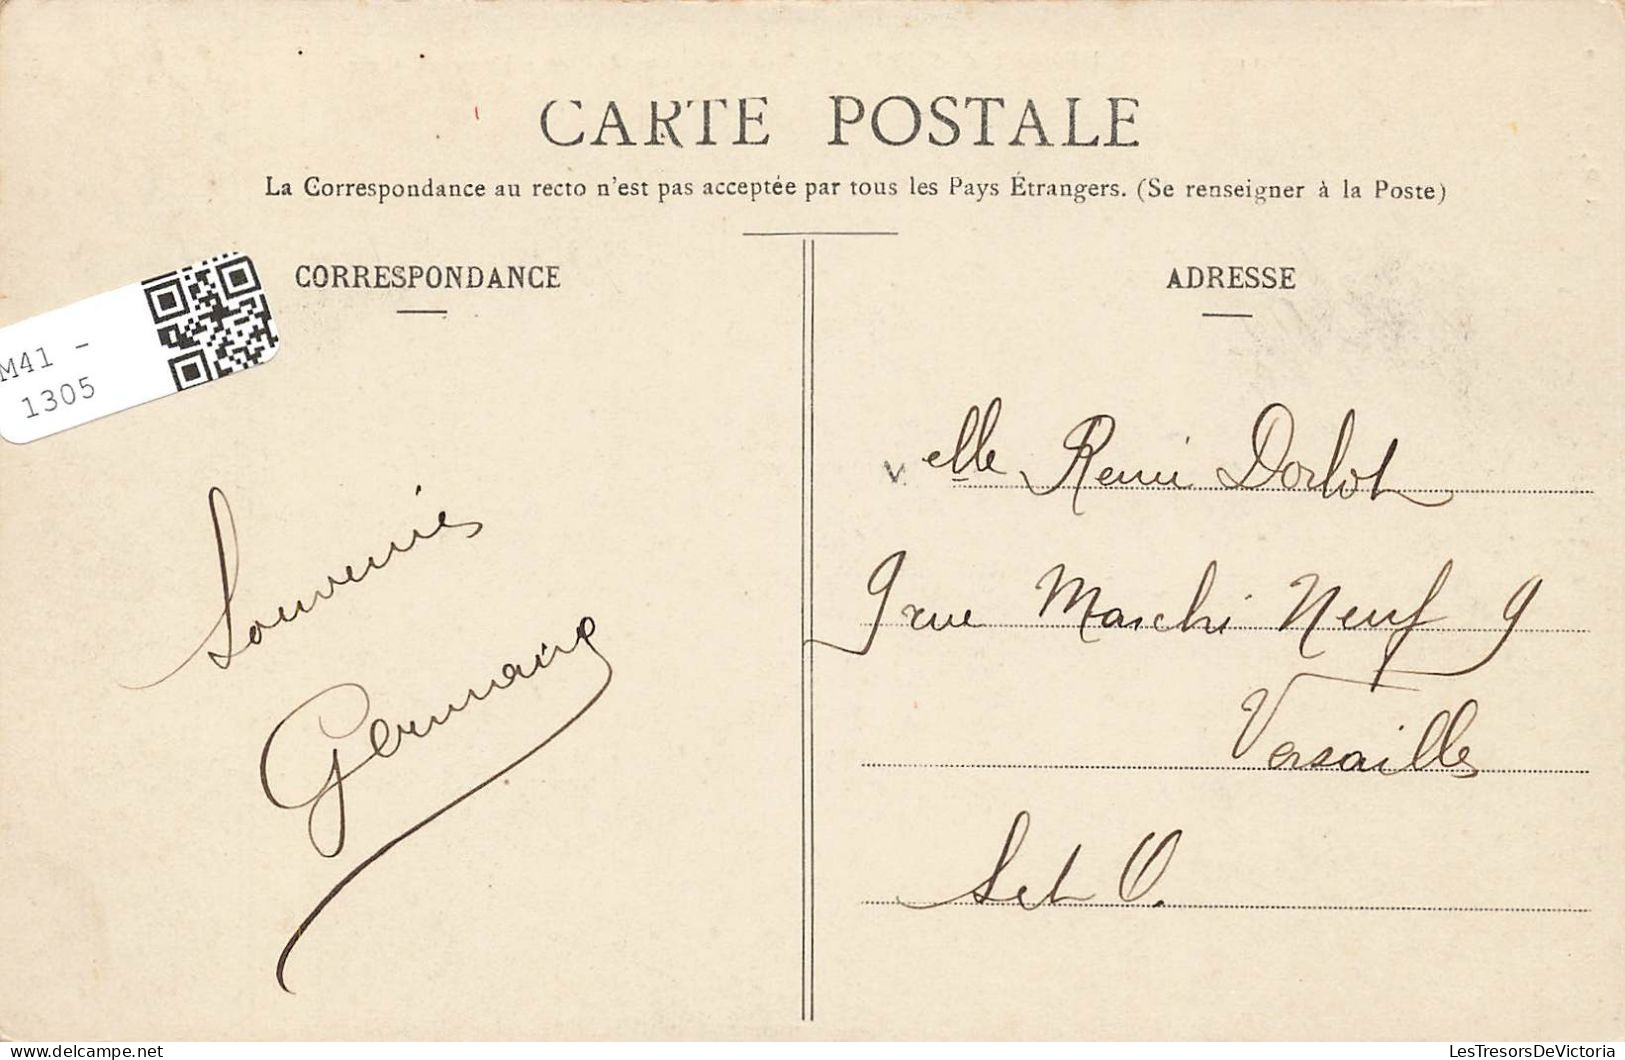 CARTE POSTALE
La Correspondance au recto n'est pas acceptée par tous les Pays Étrangers. (Se renseigner à la Poste)
CORRESPONDANCE
ADRESSE
M41 -
1305
Souvenirs
Germaine
elle Remi Dorlot
9 rue Marché Neuf 9
Versailles
S et O.
LesTresorsDeVictoria
delcampe.net